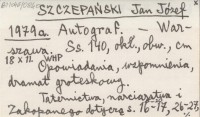 SZCZEPAŃSKI Jan Józef
1979a. Autograf. — War-
szawa. Ss. 140, okł., obw., cm
18 x 11. WHP
Opowiadania, wspomnienia,
dramat groteskowy.
Taternictwa, narciarstwa i
Zakopanego dotyczą s. 16-17, 26-27,